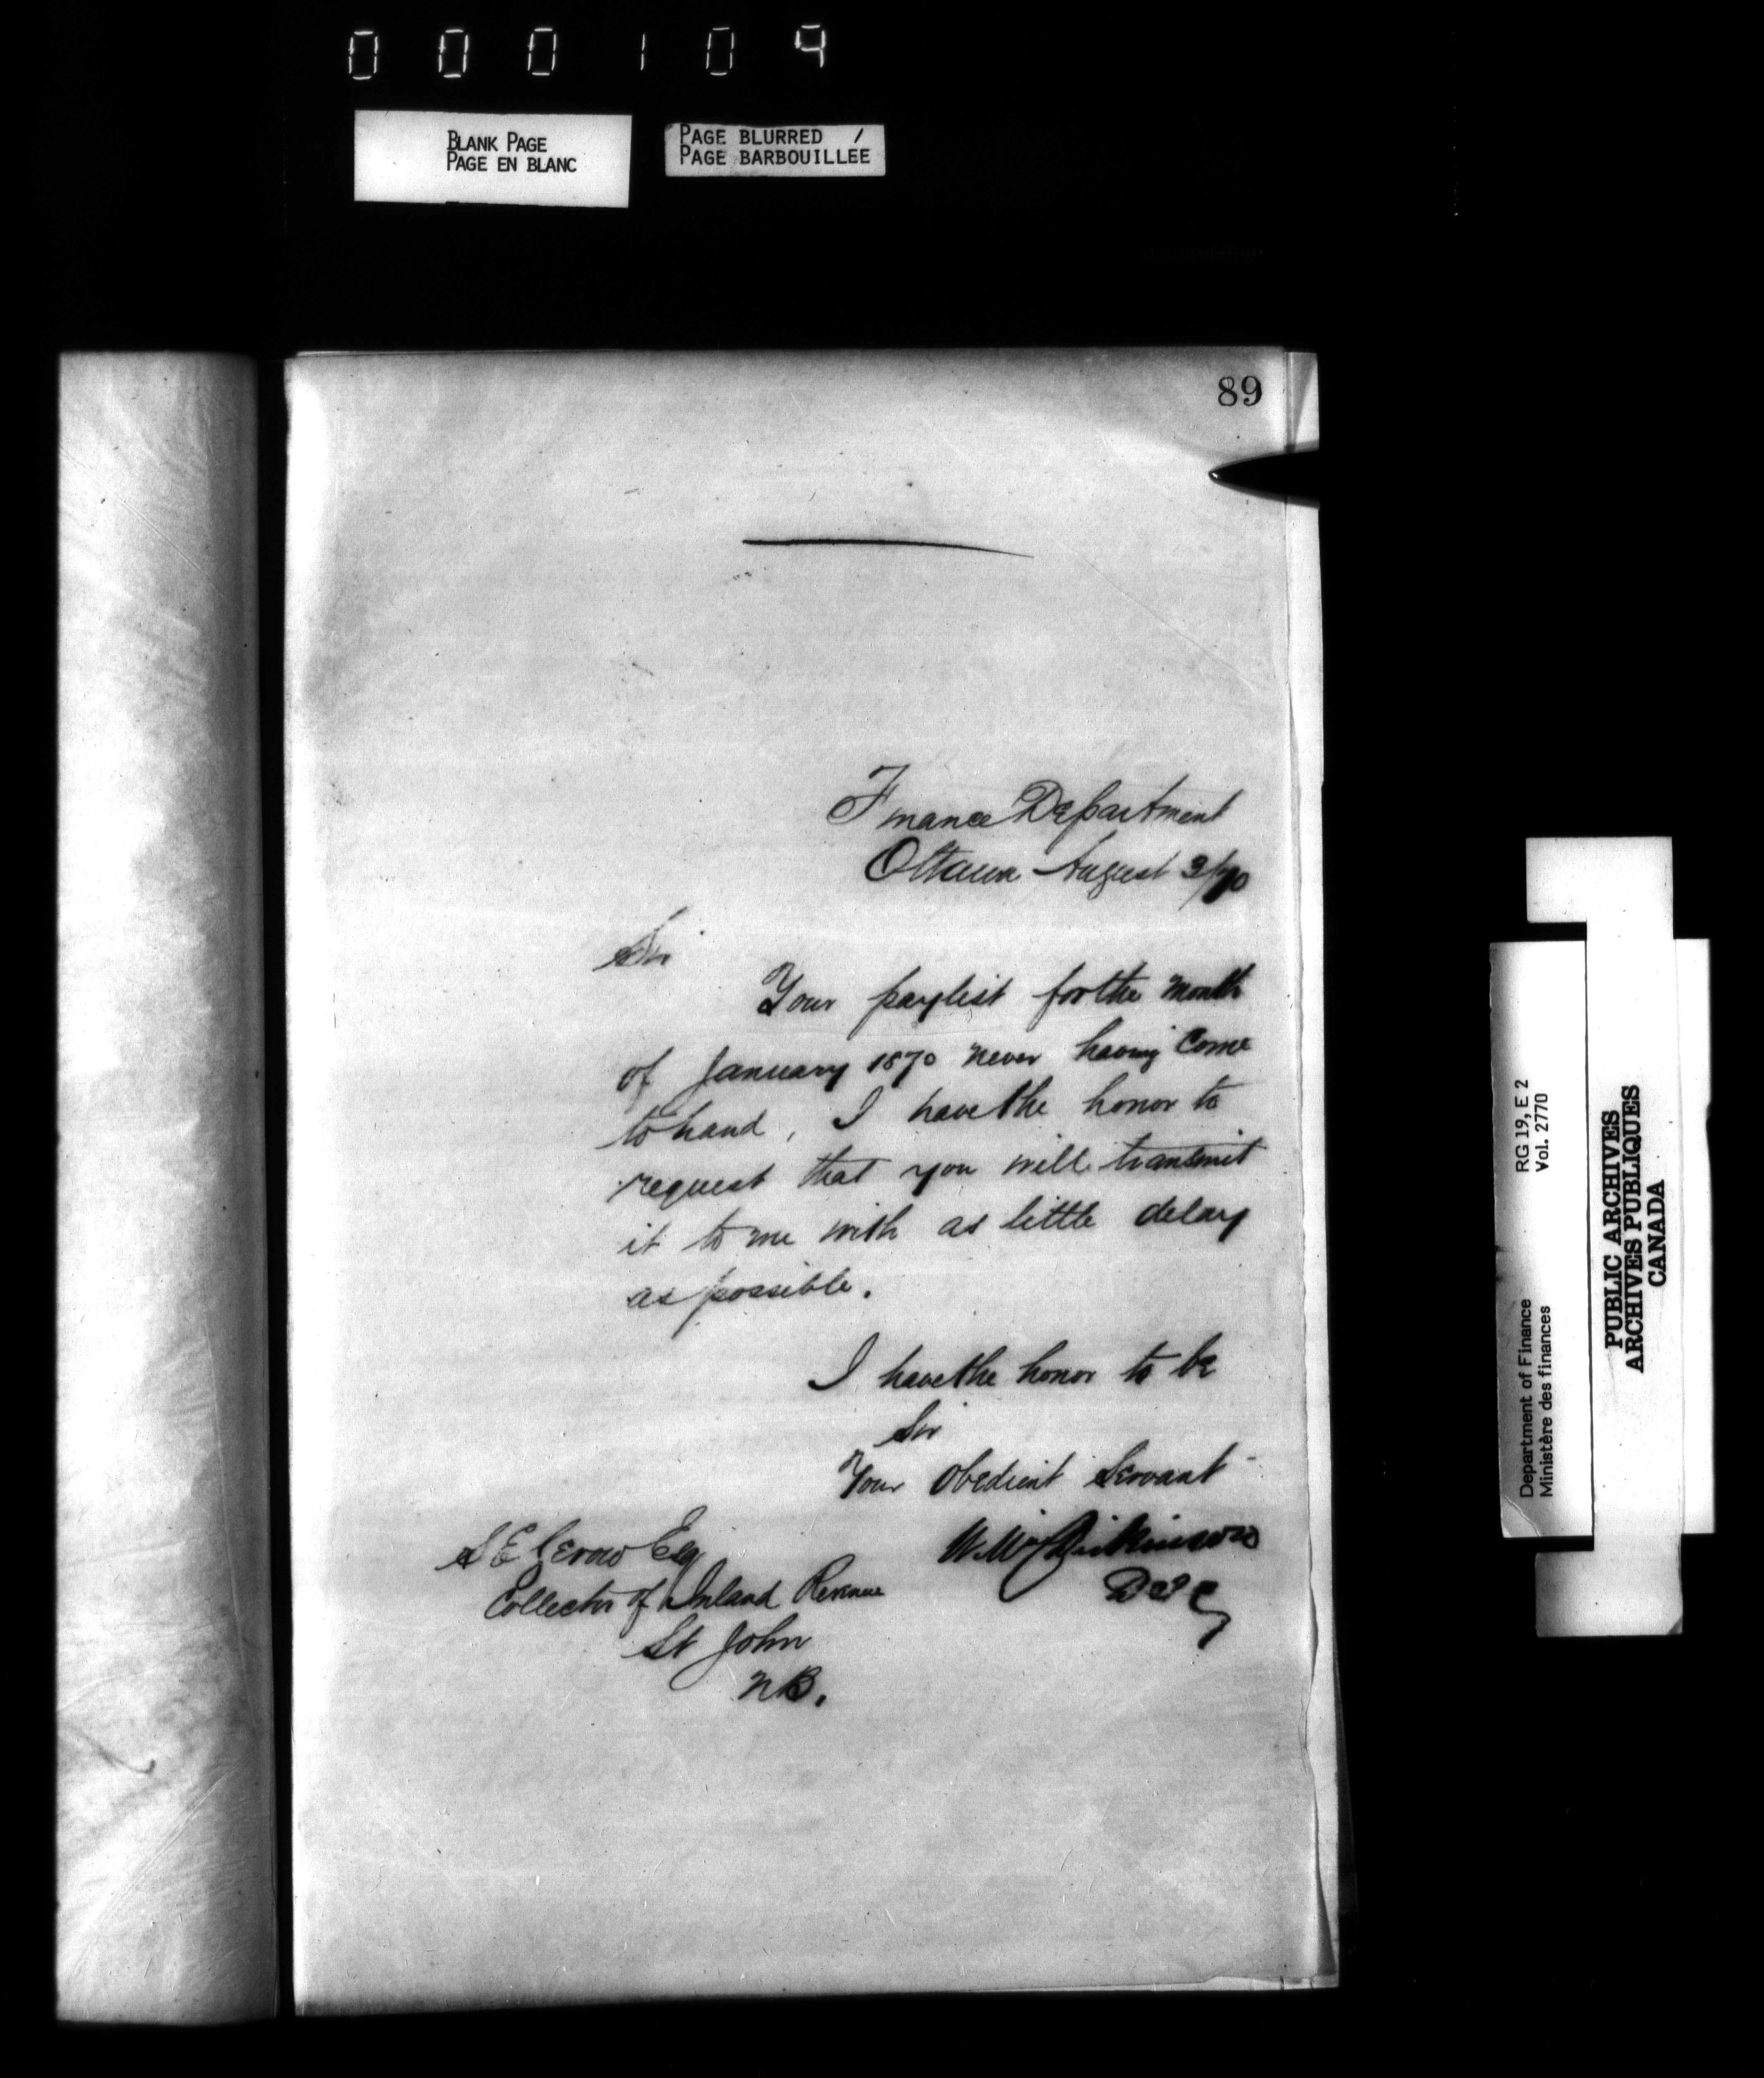 000109
BLANK PAGE
PAGE EN BLANC
PAGE BLURRED /
PAGE BARBOUILLEE
89
Finance Department
Ottawa August 3/70
Sir
Your paylist for the month
of January 1870 never having come
to hand, I have the honor to
request that you will transmit
it to me with as little delay
as possible.
I have the honor to be
Sir
Your Obedient Servant
S E Gerow Esq
Collector of Inland Revenue
St John
NB.
Wm Dickinson
Department of Finance RG 19, E 2
Ministère des finances Vol. 2770
PUBLIC ARCHIVES
ARCHIVES PUBLIQUES
CANADA